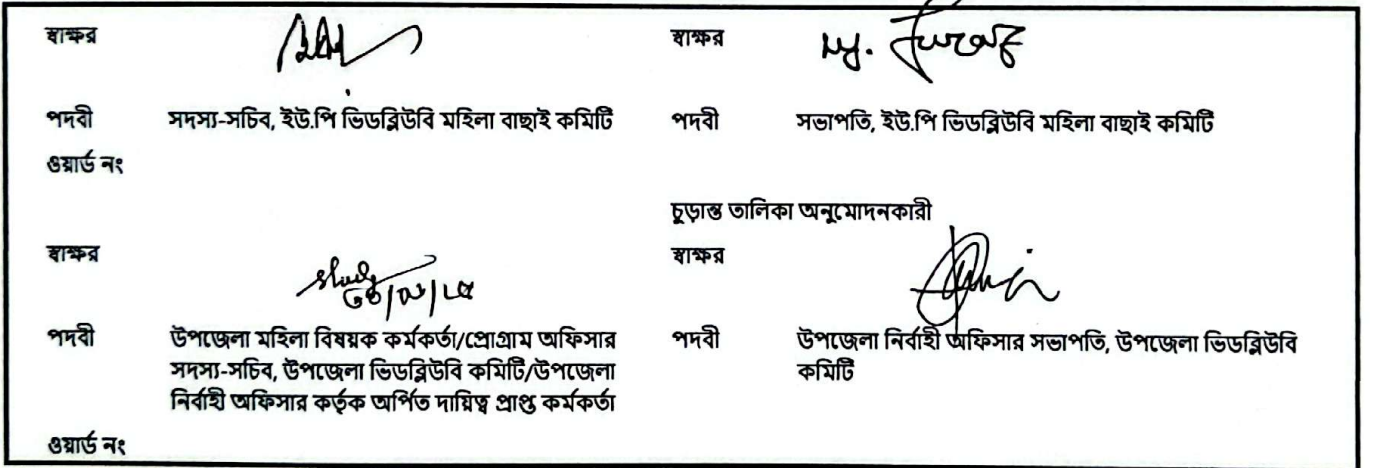 স্বাক্ষর স্বাক্ষর
পদবী সদস্য-সচিব, ইউ.পি ভিডব্লিউবি মহিলা বাছাই কমিটি পদবী সভাপতি, ইউ.পি ভিডব্লিউবি মহিলা বাছাই কমিটি
ওয়ার্ড নং
চুড়ান্ত তালিকা অনুমোদনকারী
স্বাক্ষর স্বাক্ষর
পদবী উপজেলা মহিলা বিষয়ক কর্মকর্তা/প্রোগ্রাম অফিসার
সদস্য-সচিব, উপজেলা ভিডব্লিউবি কমিটি/উপজেলা
নির্বাহী অফিসার কর্তৃক অর্পিত দায়িত্ব প্রাপ্ত কর্মকর্তা
পদবী উপজেলা নির্বাহী অফিসার সভাপতি, উপজেলা ভিডব্লিউবি
কমিটি
ওয়ার্ড নং